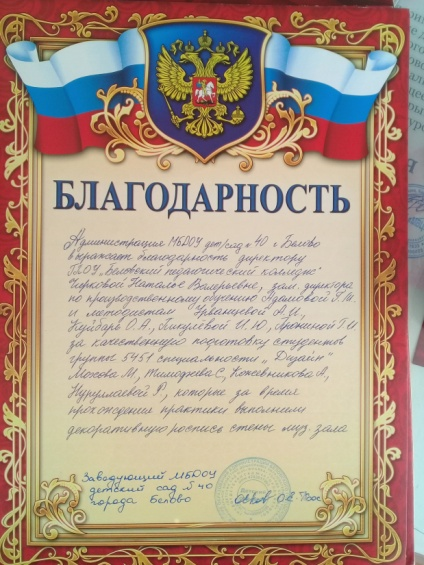 БЛАГОДАРНОСТЬ
Администрация МБДОУ дет/сад № 40 г. Белово
выражает благодарность директору
ГБОУ "Беловский педагогический колледж"
Чирковой Наталье Валерьевне, зам. директора
по производственному обучению Адамовой Т.Ш.
и методистам Урванцевой А.И.,
О.А., И.Ю., Г.И.
за качественную подготовку студентов
группы 5451 специальности "Дизайн"
М., С., Кожевникова А,
Нуруллаевой Р., которые за время
прохождения практики выполнили
декоративную роспись стены муз. зала
Заведующий МБДОУ
детский сад № 40
города Белово